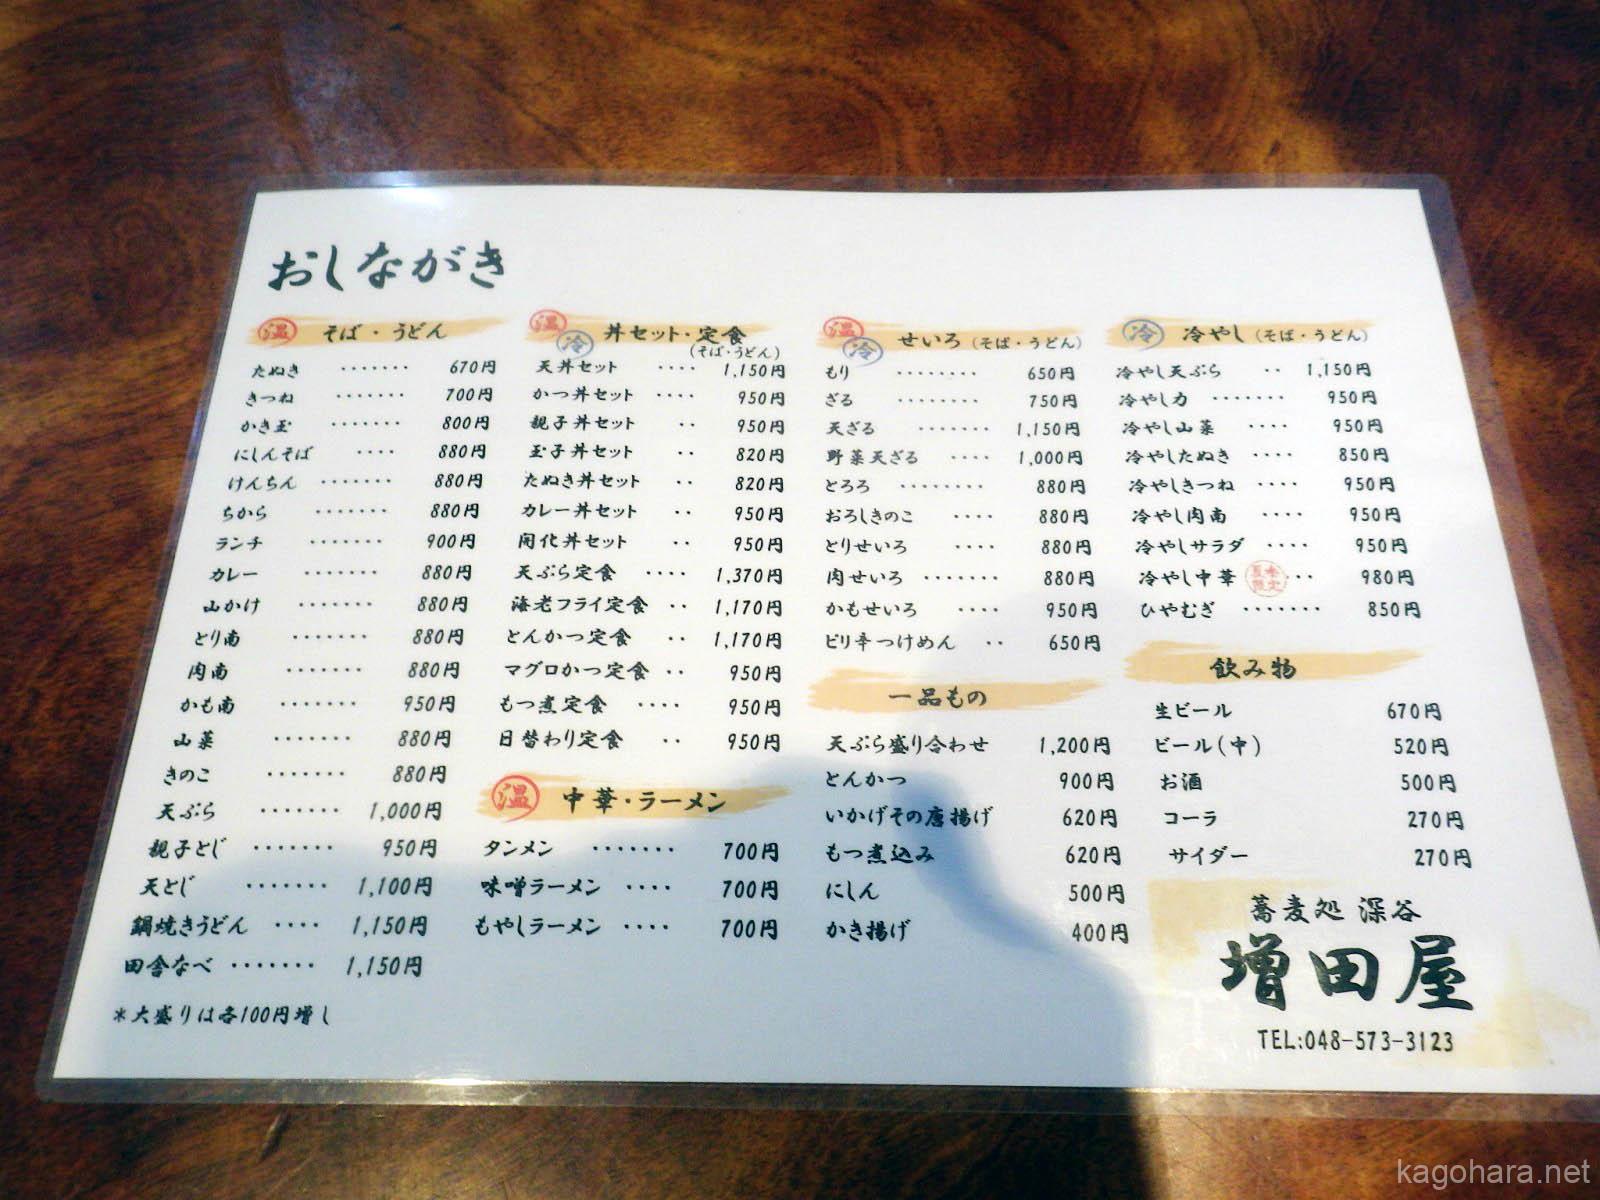 おしながき
温 そば・うどん
たぬき ······· 670円
きつね ······· 700円
かき玉 ······· 800円
にしんそば ···· 880円
けんちん ······· 880円
ちから ······· 880円
ランチ ······· 900円
カレー ······· 880円
山かけ ······· 880円
とり南 ······· 880円
肉南 ······· 880円
かも南 ······· 950円
山菜 ······· 880円
きのこ ······· 880円
天ぷら ······· 1,000円
親子とじ ······· 950円
天とじ ······· 1,100円
鍋焼きうどん ···· 1,150円
田舎なべ ······· 1,150円
*大盛りは各100円増し
温 冷 丼セット・定食
(そば・うどん)
天丼セット ···· 1,150円
かつ丼セット ···· 950円
親子丼セット ·· 950円
玉子丼セット ·· 820円
たぬき丼セット ·· 820円
カレー丼セット ·· 950円
開化丼セット ·· 950円
天ぷら定食 ···· 1,370円
海老フライ定食 ·· 1,170円
とんかつ定食 ·· 1,170円
マグロかつ定食 ·· 950円
もつ煮定食 ···· 950円
日替わり定食 ·· 950円
温 中華・ラーメン
タンメン ······· 700円
味噌ラーメン ···· 700円
もやしラーメン ···· 700円
温 冷 せいろ(そば・うどん)
もり ········ 650円
ざる ········ 750円
天ざる ······· 1,150円
野菜天ざる ···· 1,000円
とろろ ········ 880円
おろしきのこ ···· 880円
とりせいろ ···· 880円
肉せいろ ······· 880円
かもせいろ ···· 950円
ピリ辛つけめん ·· 650円
一品もの
天ぷら盛り合わせ 1,200円
とんかつ 900円
いかげその唐揚げ 620円
もつ煮込み 620円
にしん 500円
かき揚げ 400円
冷 冷やし(そば・うどん)
冷やし天ぷら ·· 1,150円
冷やし力 ······· 950円
冷やし山菜 ···· 950円
冷やしたぬき ···· 850円
冷やしきつね ···· 950円
冷やし肉南 ···· 950円
冷やしサラダ ···· 950円
冷やし中華 夏季限定 ·· 980円
ひやむぎ ······· 850円
飲み物
生ビール 670円
ビール(中) 520円
お酒 500円
コーラ 270円
サイダー 270円
蕎麦処 深谷
増田屋
TEL:048-573-3123
kagohara.net